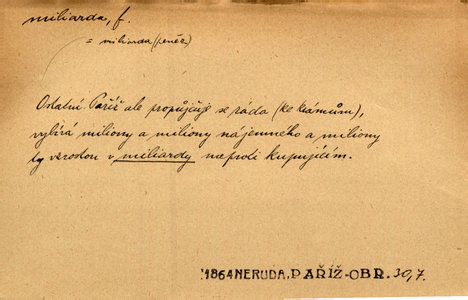 miliarda, f.
= miliarda (peněz)
Ostatní Paříž ale propůjčuje se ráda (ke krámům),
vylívá miliony a miliony nájemného a miliony
ty vzrostou v miliardy naproti kupujícím.
1864 NERUDA, PAŘÍŽ-OBR. 30,7.